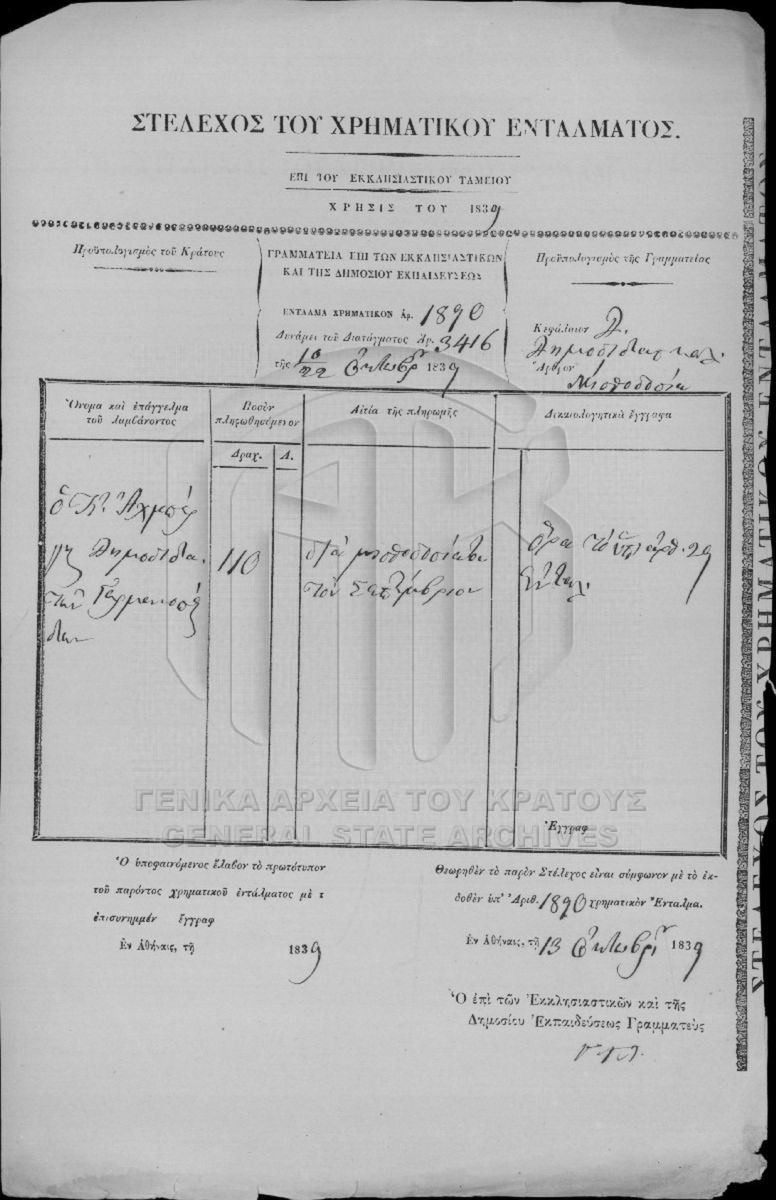 ΣΤΕΛΕΧΟΣ ΤΟΥ ΧΡΗΜΑΤΙΚΟΥ ΕΝΤΑΛΜΑΤΟΣ.
ΕΠΙ ΤΟΥ ΕΚΚΛΗΣΙΑΣΤΙΚΟΥ ΤΑΜΕΙΟΥ
ΧΡΗΣΙΣ ΤΟΥ 1839
Προϋπολογισμὸς τοῦ Κράτους
ΓΡΑΜΜΑΤΕΙΑ ΕΠΙ ΤΩΝ ΕΚΚΛΗΣΙΑΣΤΙΚΩΝ
ΚΑΙ ΤΗΣ ΔΗΜΟΣΙΟΥ ΕΚΠΑΙΔΕΥΣΕΩΣ
ΕΝΤΑΛΜΑ ΧΡΗΜΑΤΙΚΟΝ Ἀρ. 1890
Δυνάμει τοῦ Διατάγματος Ἀρ. 3416
τῆς 10/22 Ὀκτωβρ 1839
Προϋπολογισμὸς τῆς Γραμματείας
Κεφάλαιον
Ἄρθρον
Μισθοδοσία
Ὄνομα καὶ ἐπάγγελμα
τοῦ λαμβάνοντος
Ποσὸν
πληρωθησόμενον
Αἰτία τῆς πληρωμῆς
Δικαιολογητικὰ ἔγγραφα
Δραχ. Λ.
ὁ Κ.
110
διὰ μισθοδοσίαν
τὸν Σεπτέμβριον
ὅρα τὸ ὑπ ἀρθ. 29
Ἐνταλ.
Ἔγγραφ
ΓΕΝΙΚΑ ΑΡΧΕΙΑ ΤΟΥ ΚΡΑΤΟΥΣ
GENERAL STATE ARCHIVES
Ὁ ὑποφαινόμενος ἔλαβον τὸ πρωτότυπον
τοῦ παρόντος χρηματικοῦ ἐντάλματος μὲ τ
ἐπισυνημμέν ἔγγραφ
Ἐν Ἀθήναις, τῇ 1839
Θεωρηθὲν τὸ παρὸν Στέλεχος εἶναι σύμφωνον μὲ τὸ ἐκ-
δοθὲν ὑπ' Ἀριθ. 1890 χρηματικὸν Ἔνταλμα.
Ἐν Ἀθήναις, τῇ 13 Ὀκτωβρ 1839
Ὁ ἐπὶ τῶν Ἐκκλησιαστικῶν καὶ τῆς
Δημοσίου Ἐκπαιδεύσεως Γραμματεὺς
ΣΤΕΛΕΧΟΣ ΤΟΥ ΧΡΗΜΑΤΙΚΟΥ ΕΝΤΑΛΜΑΤΟΣ